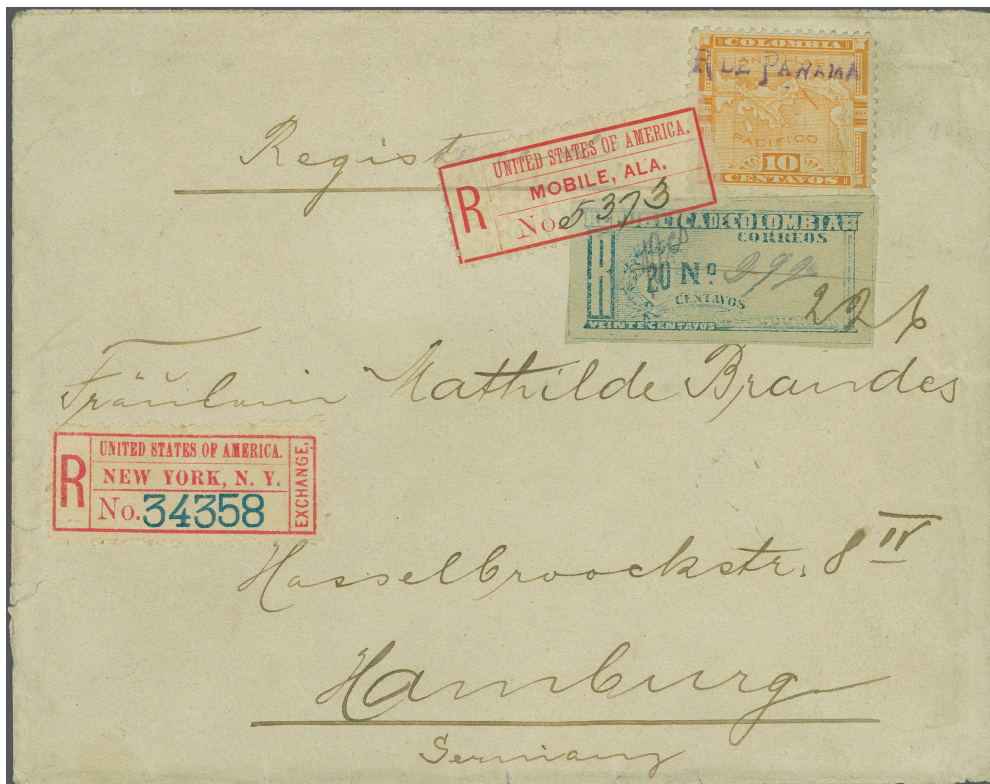 COLOMBIA
R DE PANAMA
PACIFICO
10
CENTAVOS
Regist
R
UNITED STATES OF AMERICA.
MOBILE, ALA.
No. 5373
REPUBLICA DE COLOMBIA
CORREOS
R
20 No. 292
CENTAVOS
VEINTE CENTAVOS
226
Fräulein Mathilde Brandes
R
UNITED STATES OF AMERICA.
NEW YORK, N. Y.
No. 34358
EXCHANGE.
Hasselbroockstr. 8 IV
Hamburg
Germany